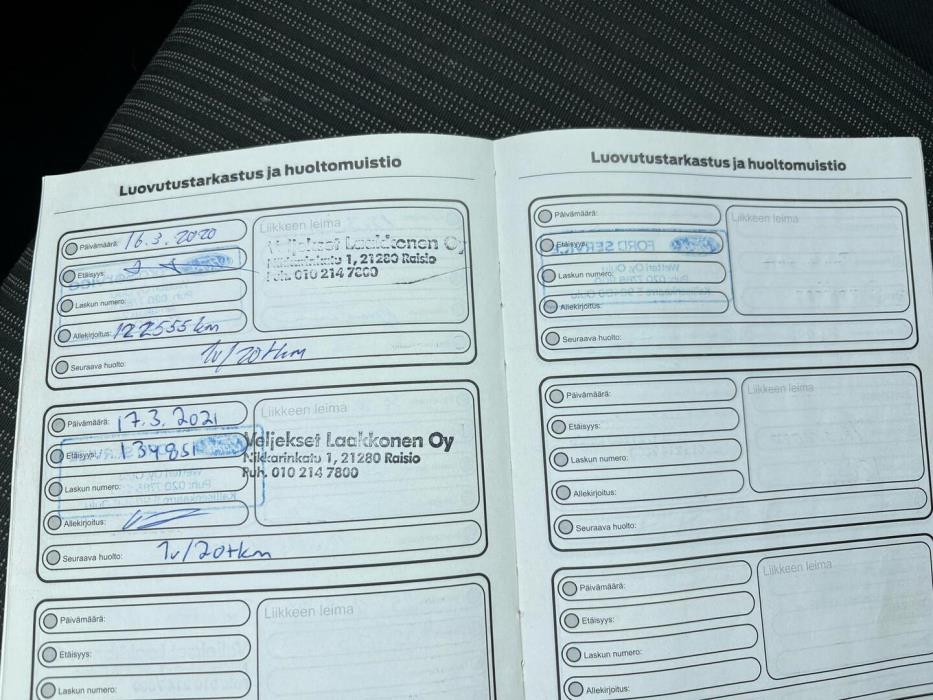 Luovutustarkastus ja huoltomuistio
Päivämäärä: 16.3.2020
Liikkeen leima
Veljekset Laakkonen Oy
Nikkarinkatu 1, 21280 Raisio
Puh. 010 214 7800
Etäisyys:
Laskun numero:
Allekirjoitus: 122555 km
Seuraava huolto: 1v/20tkm
Päivämäärä: 17.3.2021
Liikkeen leima
Etäisyys: 134851
Veljekset Laakkonen Oy
Nikkarinkatu 1, 21280 Raisio
Puh. 010 214 7800
Laskun numero:
Allekirjoitus:
Seuraava huolto: 1v/20tkm
Päivämäärä:
Liikkeen leima
Etäisyys:
Laskun numero:
Luovutustarkastus ja huoltomuistio
Päivämäärä:
Liikkeen leima
Etäisyys:
FORD SERVICE
Wetteri Oy Oulu
Laskun numero:
Allekirjoitus:
Seuraava huolto:
Päivämäärä:
Liikkeen leima
Etäisyys:
Laskun numero:
Allekirjoitus:
Seuraava huolto:
Päivämäärä:
Liikkeen leima
Etäisyys:
Laskun numero:
Allekirjoitus: